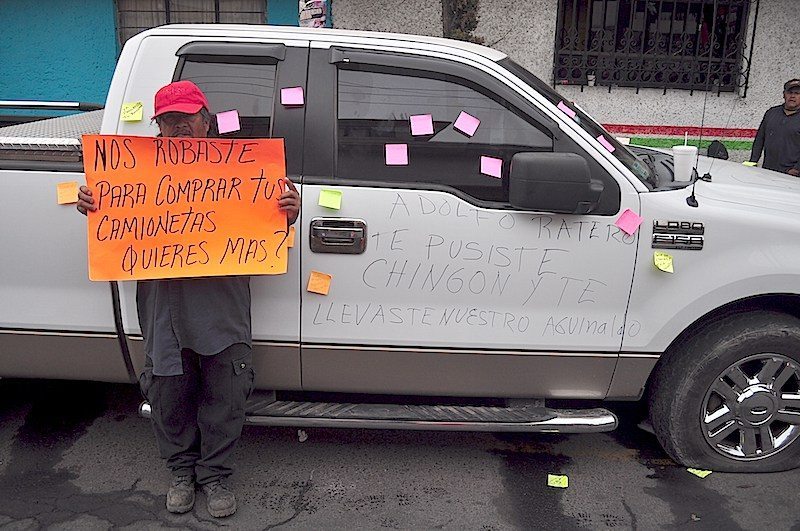 NOS ROBASTE
PARA COMPRAR TUS
CAMIONETAS
QUIERES MAS?
ADOLFO RATERO
TE PUSISTE
CHINGON Y TE
LLEVASTE NUESTRO AGUINALDO
LOBO